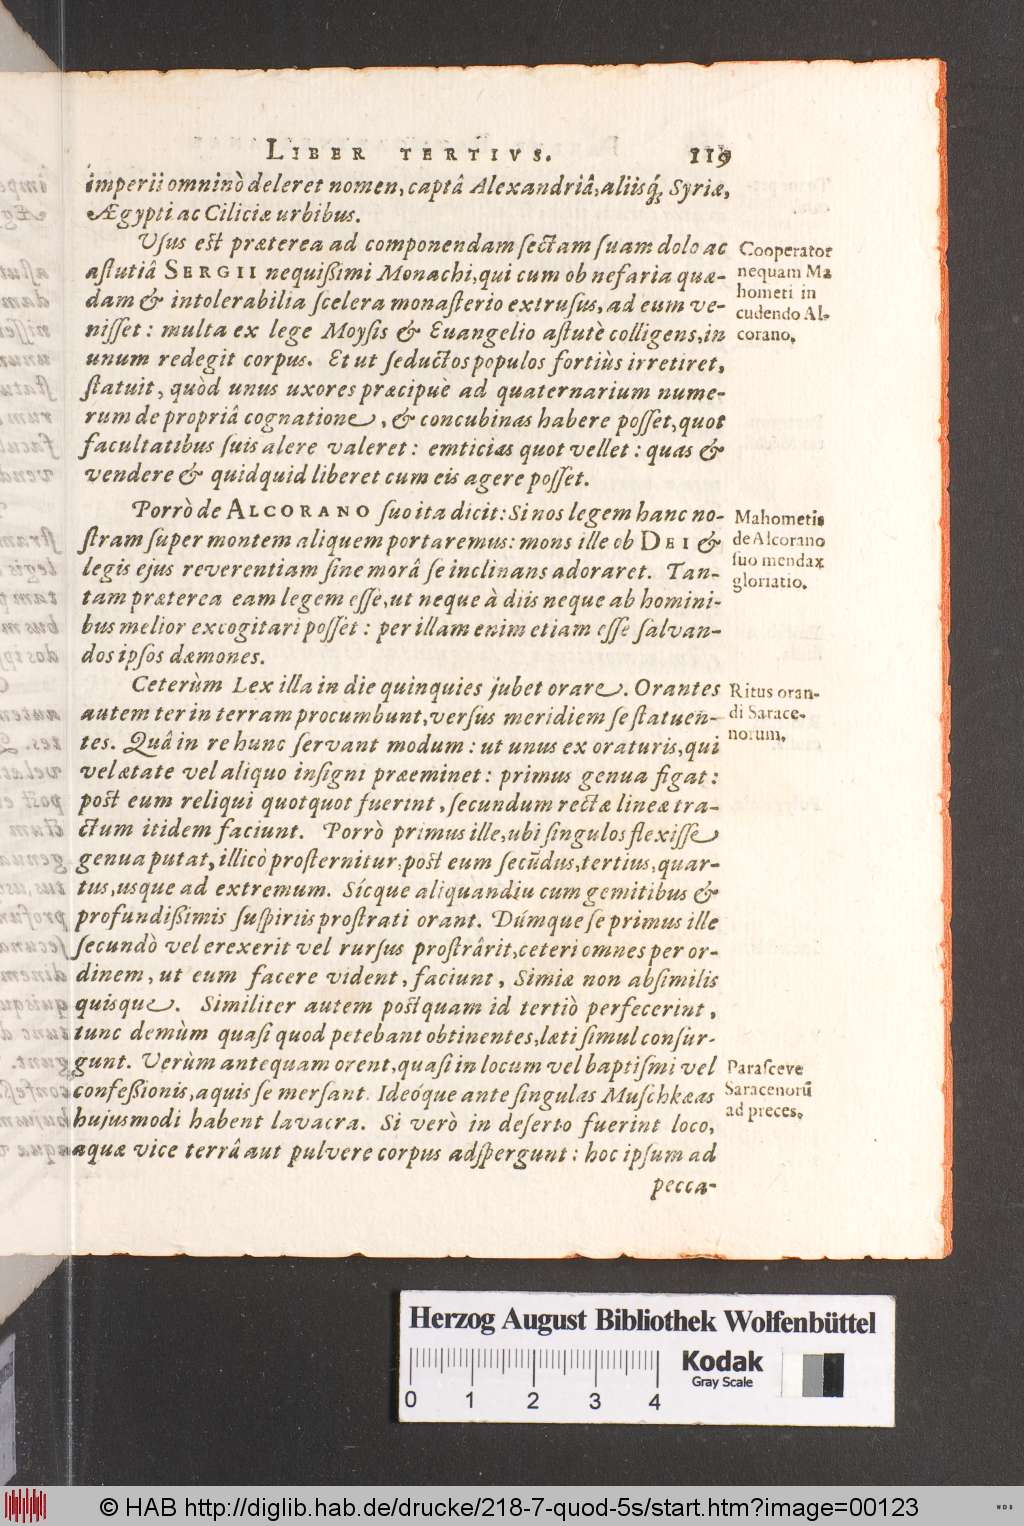 LIBER TERTIVS. 119
imperii omninò deleret nomen, captâ Alexandriâ, aliisq́; Syriæ,
Ægypti ac Ciliciæ urbibus.
Usus est præterea ad componendam sectam suam dolo ac
astutiâ SERGII nequißimi Monachi, qui cum ob nefaria quæ-
dam & intolerabilia scelera monasterio extrusus, ad eum ve-
nisset: multa ex lege Moysis & Euangelio astutè colligens, in
unum redegit corpus. Et ut seductos populos fortiùs irretiret,
statuit, quòd unus uxores præcipuè ad quaternarium nume-
rum de propriâ cognatione, & concubinas habere posset, quot
facultatibus suis alere valeret: emticias quot vellet: quas &
vendere & quidquid liberet cum eis agere posset.
Cooperator
nequam Ma
hometi in
cudendo Al-
corano.
Porrò de ALCORANO suo ita dicit: Si nos legem hanc no-
stram super montem aliquem portaremus: mons ille ob DEI &
legis ejus reverentiam sine morâ se inclinans adoraret. Tan-
tam præterea eam legem esse, ut neque à diis neque ab homini-
bus melior excogitari posset: per illam enim etiam esse salvan-
dos ipsos dæmones.
Mahometis
de Alcorano
suo mendax
gloriatio.
Ceterùm Lex illa in die quinquies jubet orare. Orantes
autem ter in terram procumbunt, versus meridiem se statuen-
tes. Quâ in re hunc servant modum: ut unus ex oraturis, qui
vel ætate vel aliquo insigni præeminet: primus genua figat:
post eum reliqui quotquot fuerint, secundum rectæ lineæ tra-
ctum itidem faciunt. Porrò primus ille, ubi singulos flexisse
genua putat, illicò prosternitur: post eum secũdus, tertius, quar-
tus, usque ad extremum. Sícque aliquandiu cum gemitibus &
profundißimis suspiriis prostrati orant. Dúmque se primus ille
secundò vel erexerit vel rursus prostrârit, ceteri omnes per or-
dinem, ut eum facere vident, faciunt, Simiæ non absimilis
quisque. Similiter autem postquam id tertiò perfecerint,
tunc demùm quasi quod petebant obtinentes, læti simul consur-
gunt. Verùm antequam orent, quasi in locum vel baptismi vel
confeßionis, aquis se mersant. Ideóque ante singulas Muschkæas
hujusmodi habent lavacra. Si verò in deserto fuerint loco,
aquæ vice terrâ aut pulvere corpus adspergunt: hoc ipsum ad
pecca-
Ritus oran-
di Sarace-
norum.
Parasceve
Saracenorũ
ad preces.
Herzog August Bibliothek Wolfenbüttel
0 1 2 3 4
Kodak
Gray Scale
© HAB http://diglib.hab.de/drucke/218-7-quod-5s/start.htm?image=00123